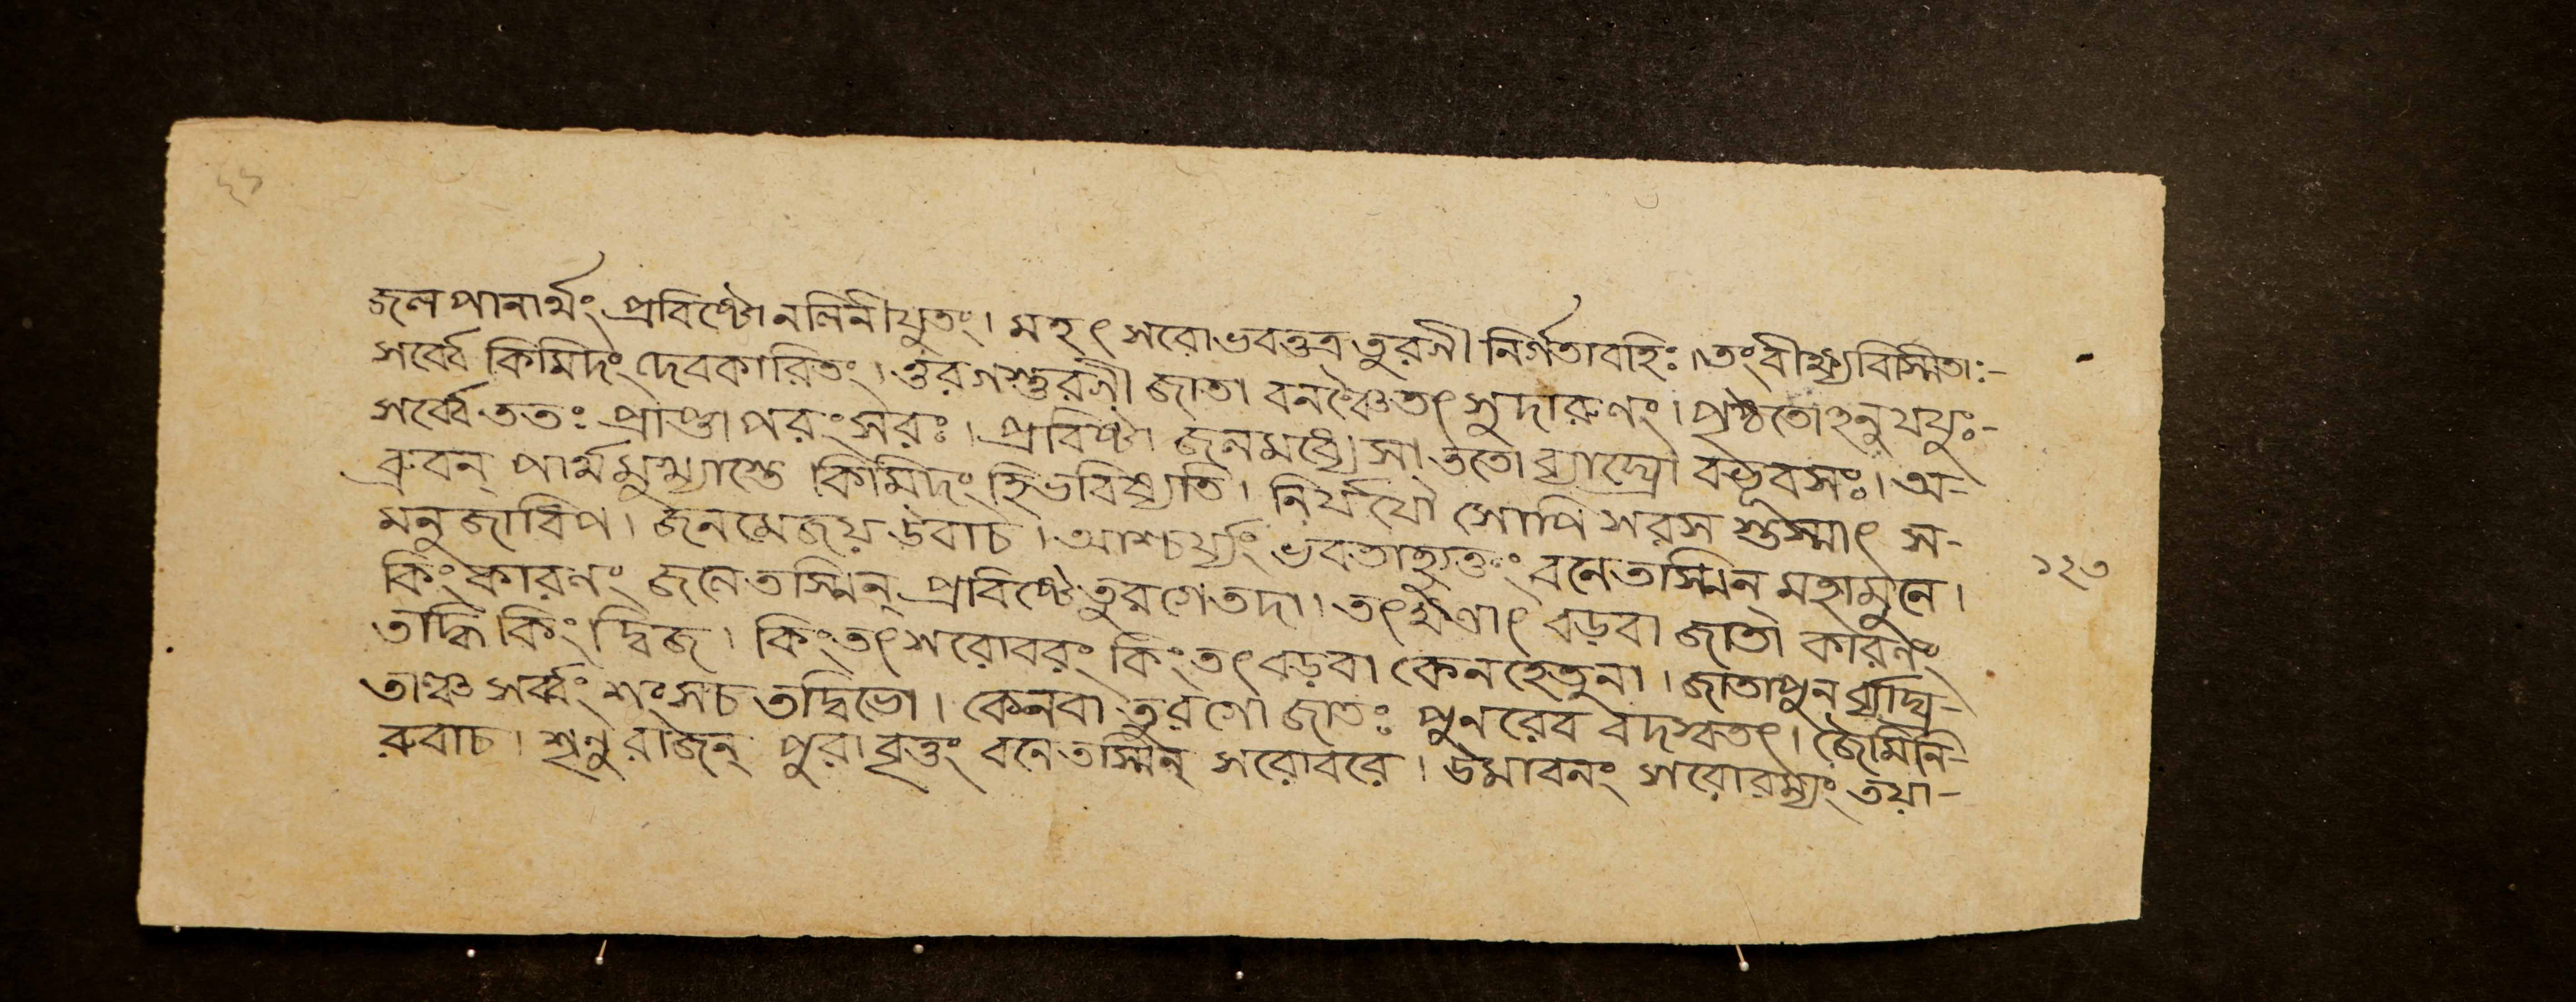 জলপানার্থং প্রবিষ্টো নলিনীযুতং। মহৎ সরোভবত্তত্র তুরগী নির্গতাবহিঃ। তং বীক্ষ্য বিস্মিতাঃ-
সর্ব্বে কিমিদং দেবকারিতং। তুরগস্তুরগী জাতা বনঞ্চৈতৎ সুদারুণং। পৃষ্ঠতোঽনুযযুঃ-
সর্ব্বে ততঃ প্রাপ্তা পরং সরঃ। প্রবিষ্টা জলমধ্যে সা ততো ব্যাঘ্রো বভূব সঃ। অ-
ব্রুবন্ পার্থমুখ্যাস্তে কিমিদং হি ভবিষ্যতি। নির্যযৌ সোপি সরসস্তস্মাৎ স-
মনুজাধিপ। জনমেজয় উবাচ। আশ্চর্য্যং ভবতাহ্যুক্তং বনেতস্মিন্ মহামুনে।
কিং কারণং জলে তস্মিন্ প্রবিষ্টে তুরগে তদা। তৎক্ষণাৎ বড়বা জাতা কারণং
তদ্ধি কিং দ্বিজ। কিং তৎ সরোবরং কিং তৎ বড়বা কেন হেতুনা। জাতা পুনর্ব্যাঘ্র-
তাঞ্চ সর্ব্বং শংসচ তদ্বিভো। কেনবা তুরগো জাতঃ পুনরেব বদস্বতৎ। জৈমিনি-
রুবাচ। শৃণু রাজন্ পুরাবৃত্তং বনে তস্মিন্ সরোবরে। উমাবনং সরোরম্যং তয়া-
১২৩